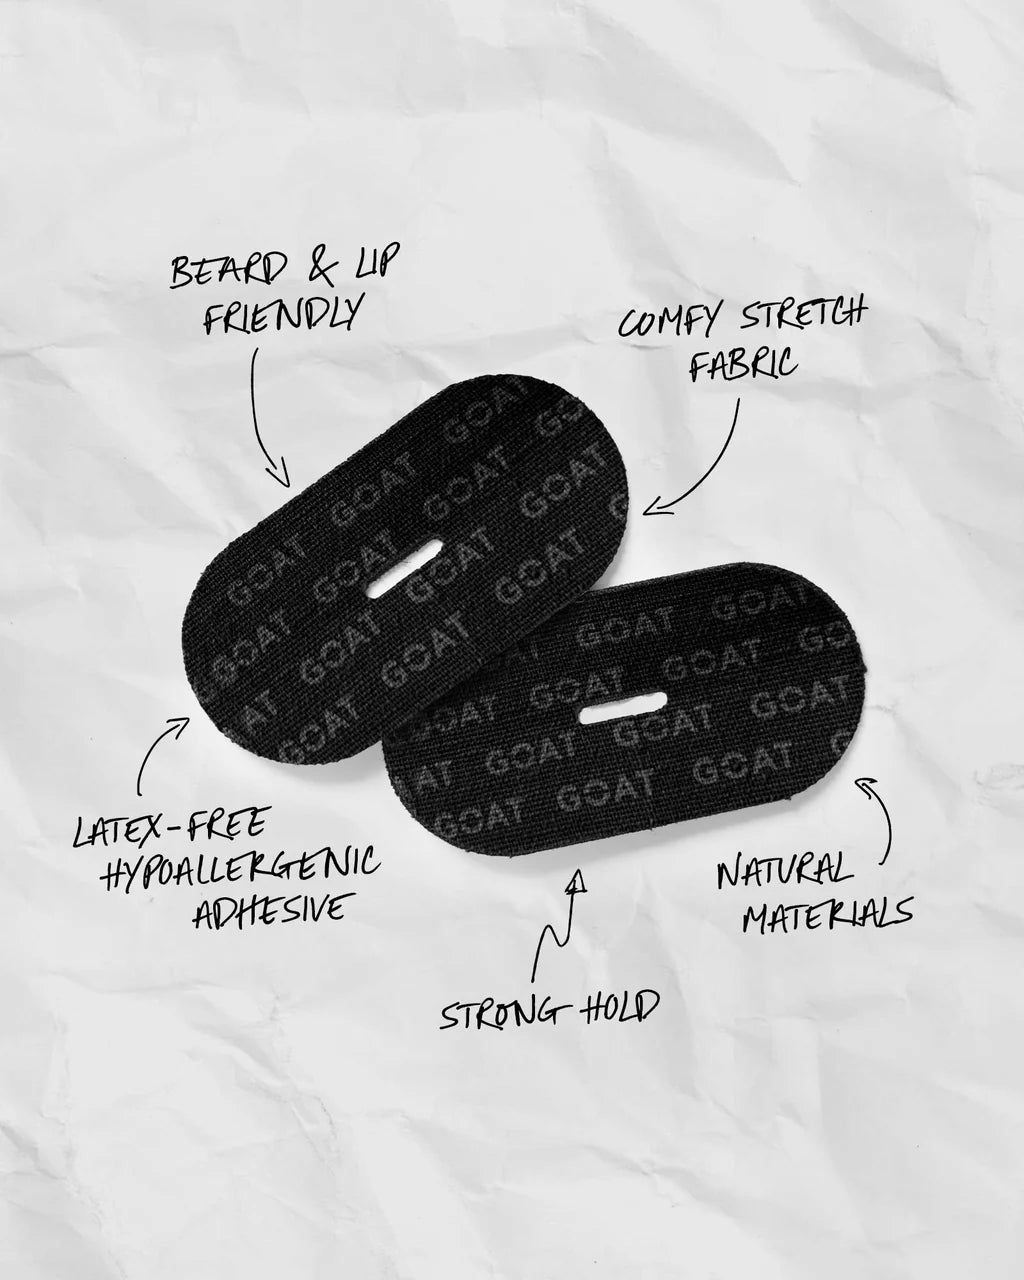 BEARD & LIP
FRIENDLY
COMFY STRETCH
FABRIC
GOAT
GO
GOAT GOAT GOAT
GOAT GOAT GOAT GOAT
GOAT GOAT GOAT
AT GOAT
GOAT GOAT GO
GOAT GOAT GOAT
GOAT GOAT GOAT
AT GOAT GOAT
GOAT
LATEX-FREE
HYPOALLERGENIC
ADHESIVE
NATURAL
MATERIALS
STRONG HOLD